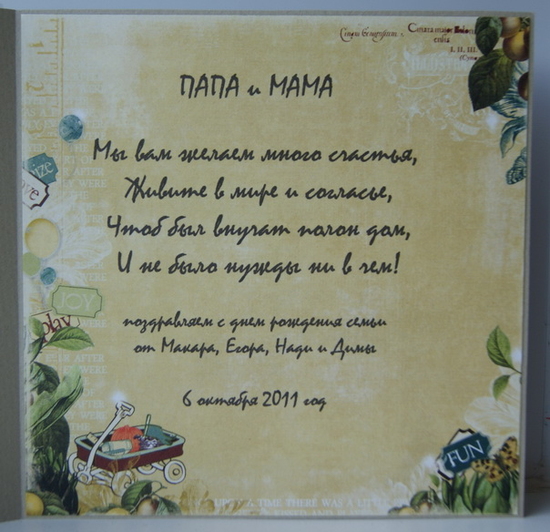 ПАПА и МАМА
Мы вам желаем много счастья,
Живите в мире и согласье,
Чтоб был внучат полон дом,
И не было нужды ни в чем!
поздравляем с днем рождения семьи
от Макара, Егора, Нади и Димы
6 октября 2011 год
JOY
play
FUN